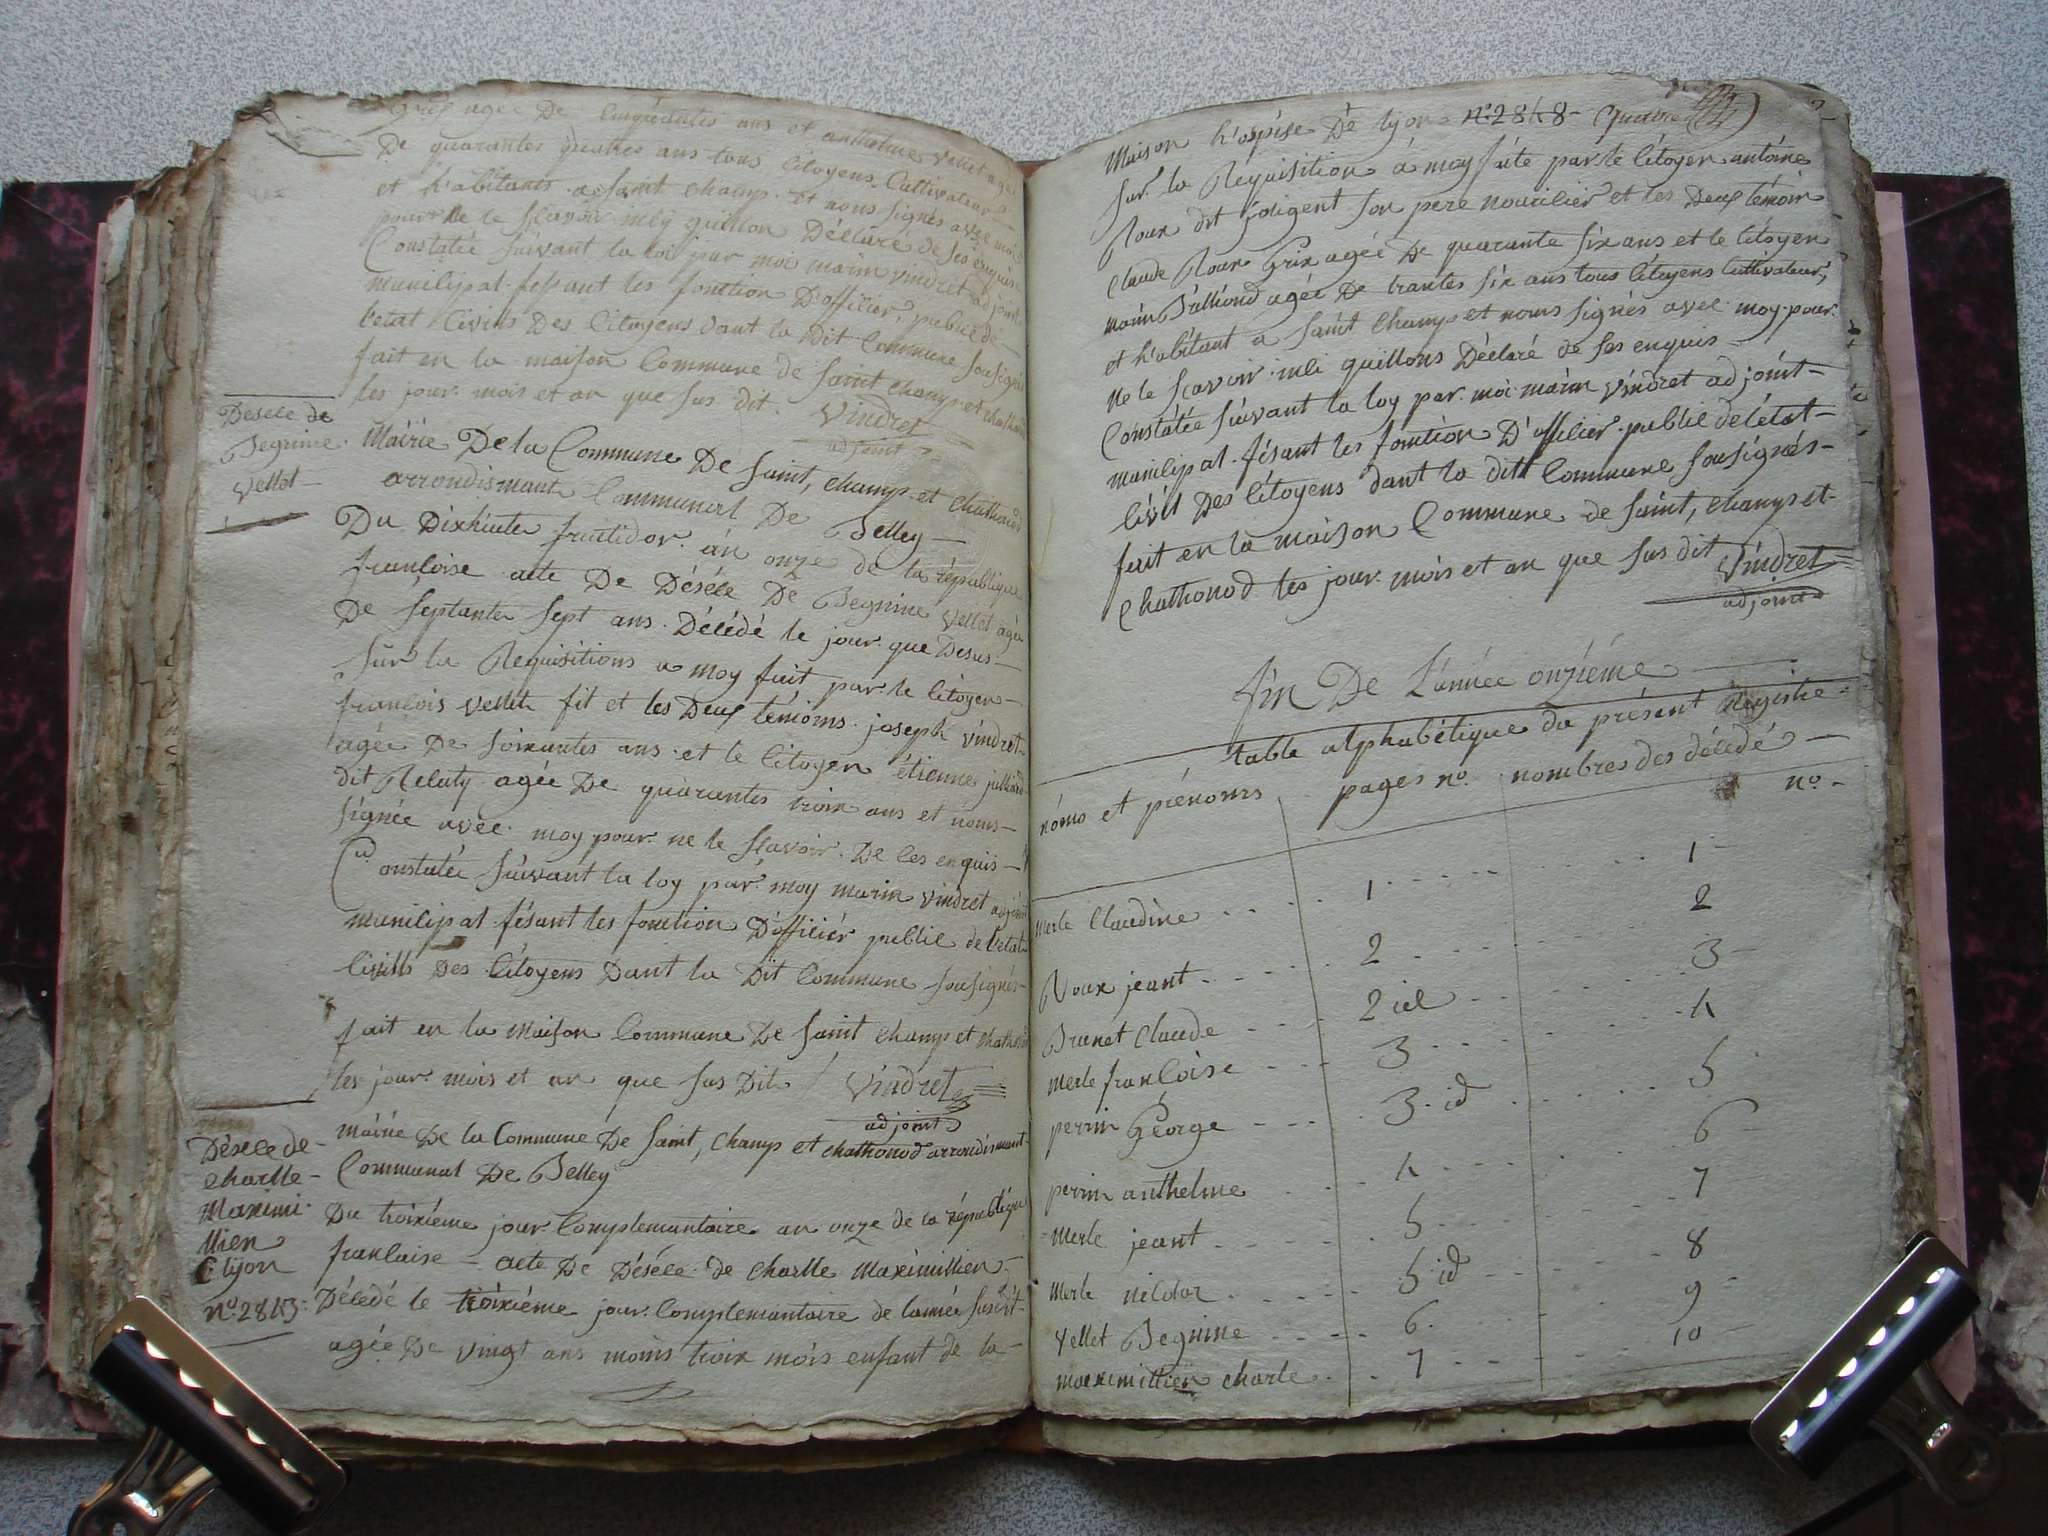 agée De Cinquantes ans et anthelme vellet agée
De quarantes quatres ans tous Citoyens Cultivateur
et h'abitants a saint champ et nous signés avec moi
pour ne le sçavoir mly quillon Déclare de ses enquis
Constatée suivant la loi par moi marin vindret adjoint
municipal fesant les fonction D'officier public de
l'etat Civils Des Citoyens dant la Dit Commune sousignés
fait en la maison Commune de saint champ et chathonod
les jour mois et an que sus dit Vindret
adjoint
Déséce de
Begnine
vellet
Mairie De la Commune De saint, champ et chathonod
arrondismant Communal De Belley
Du Dixhuite fructidor an onze de la république
françoise acte De Déséce De Begnine vellet agée
De septante sept ans Décédé le jour que Desus
sur la Requisitions a moy fait par le Citoyen
françois vellet fil et les Deux témoins joseph vindret
agée De soixantes ans et le Citoyen étienne julliand
dit Reluty agée De quarantes troix ans et nous
signée avec moy pour ne le sçavoir De ces enquis
Constatée suivant la loy par moy marin vindret adjoint
municipal fésant les fonction D'officiér public de l'etat
Civills Des Citoyens Dant la Dit Commune sousignés
fait en la Maison Commune De saint champ et chathonod
les jour mois et an que sus Dit Vindret
adjoint
Déséce de
charlle
Maximi
llien
Clyon
n.o 2843
mairie De la Commune De saint, champ et chathonod arrondismant
Communal De Belley
Du troixiéme jour Complemantaire an onze de la républiqu
francaise acte De Déséce de charlle Maximillien
Décédé le troixiéme jour Complemantaire de l'année susdit
agée De vingt ans moins troix mois enfant de la
Maison h'ospise De lyon n.o 2848
sur la Requisition à moy faite par le Citoyen antoine
Roux dit joligent son pere nouricier et les Deux témoin
Claude Roux Grix agée De quarante six ans et le Citoyen
marin Julliand agée De trantes six ans tous Citoyens Cultivateur
et h'abitant a saint champ et nous signés avec moy pour
ne le scavoir mli quillons Déclaré de ses enquis
Constatée suivant la loy par moi marin vindret adjoint
municipal fésant les fonction D'officier public de l'état
Civil Des Citoyens dant la dit Commune sousignés
fait en la maison Commune de saint, champ et
chathonod les jour mois et an que sus dit Vindret
adjoint
fin De L'année onziéme
table alphabétique du présent Registre
noms et prénoms pages n.o nombres des décedé n.o
Merle Claudine 1 1
Roux jeant 2 2
Brunet Claude 2 id 3
Merle françoise 3 4
perrin George 3 id 5
perrin anthelme 4 6
Merle jeant 5 7
Merle nicolas 5 id 8
vellet Begnine 6 9
maximillien charle 7 10